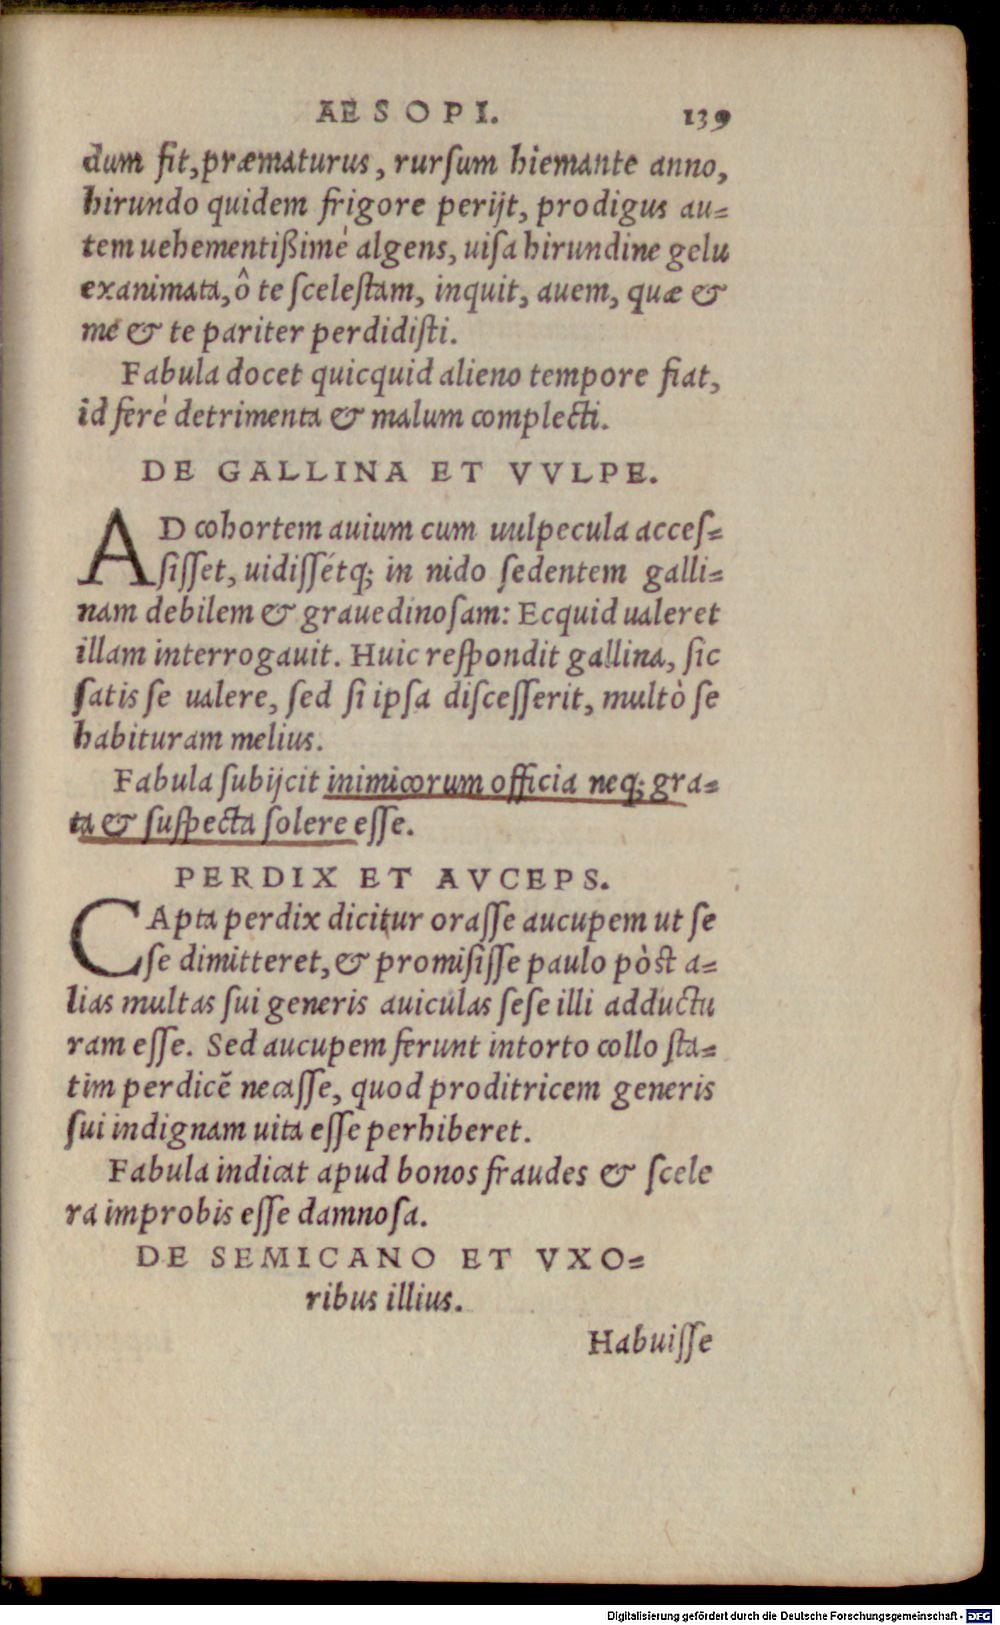 AESOPI. 139
dum fit, præmaturus, rurſum hiemante anno,
hirundo quidem frigore perijt, prodigus au=
tem uehementißimè algens, uiſa hirundine gelu
exanimata, ô te ſceleſtam, inquit, auem, quæ &
me & te pariter perdidiſti.
Fabula docet quicquid alieno tempore fiat,
id ferè detrimenta & malum complecti.
DE GALLINA ET VVLPE.
AD cohortem auium cum uulpecula acceſ=
ſiſſet, uidiſſétq; in nido ſedentem galli=
nam debilem & grauedinoſam: Ecquid ualeret
illam interrogauit. Huic reſpondit gallina, ſic
ſatis ſe ualere, ſed ſi ipſa diſceſſerit, multò ſe
habituram melius.
Fabula ſubijcit inimicorum officia neq; gra=
ta & ſuſpecta ſolere eſſe.
PERDIX ET AVCEPS.
CApta perdix dicitur oraſſe aucupem ut ſe
ſe dimitteret, & promiſiſſe paulo pòst a=
lias multas ſui generis auiculas ſeſe illi adductu
ram eſſe. Sed aucupem ferunt intorto collo ſta=
tim perdicẽ necaſſe, quod proditricem generis
ſui indignam uita eſſe perhiberet.
Fabula indicat apud bonos fraudes & ſcele
ra improbis eſſe damnoſa.
DE SEMICANO ET VXO=
ribus illius.
Habuiſſe
Digitalisierung gefördert durch die Deutsche Forschungsgemeinschaft - DFG